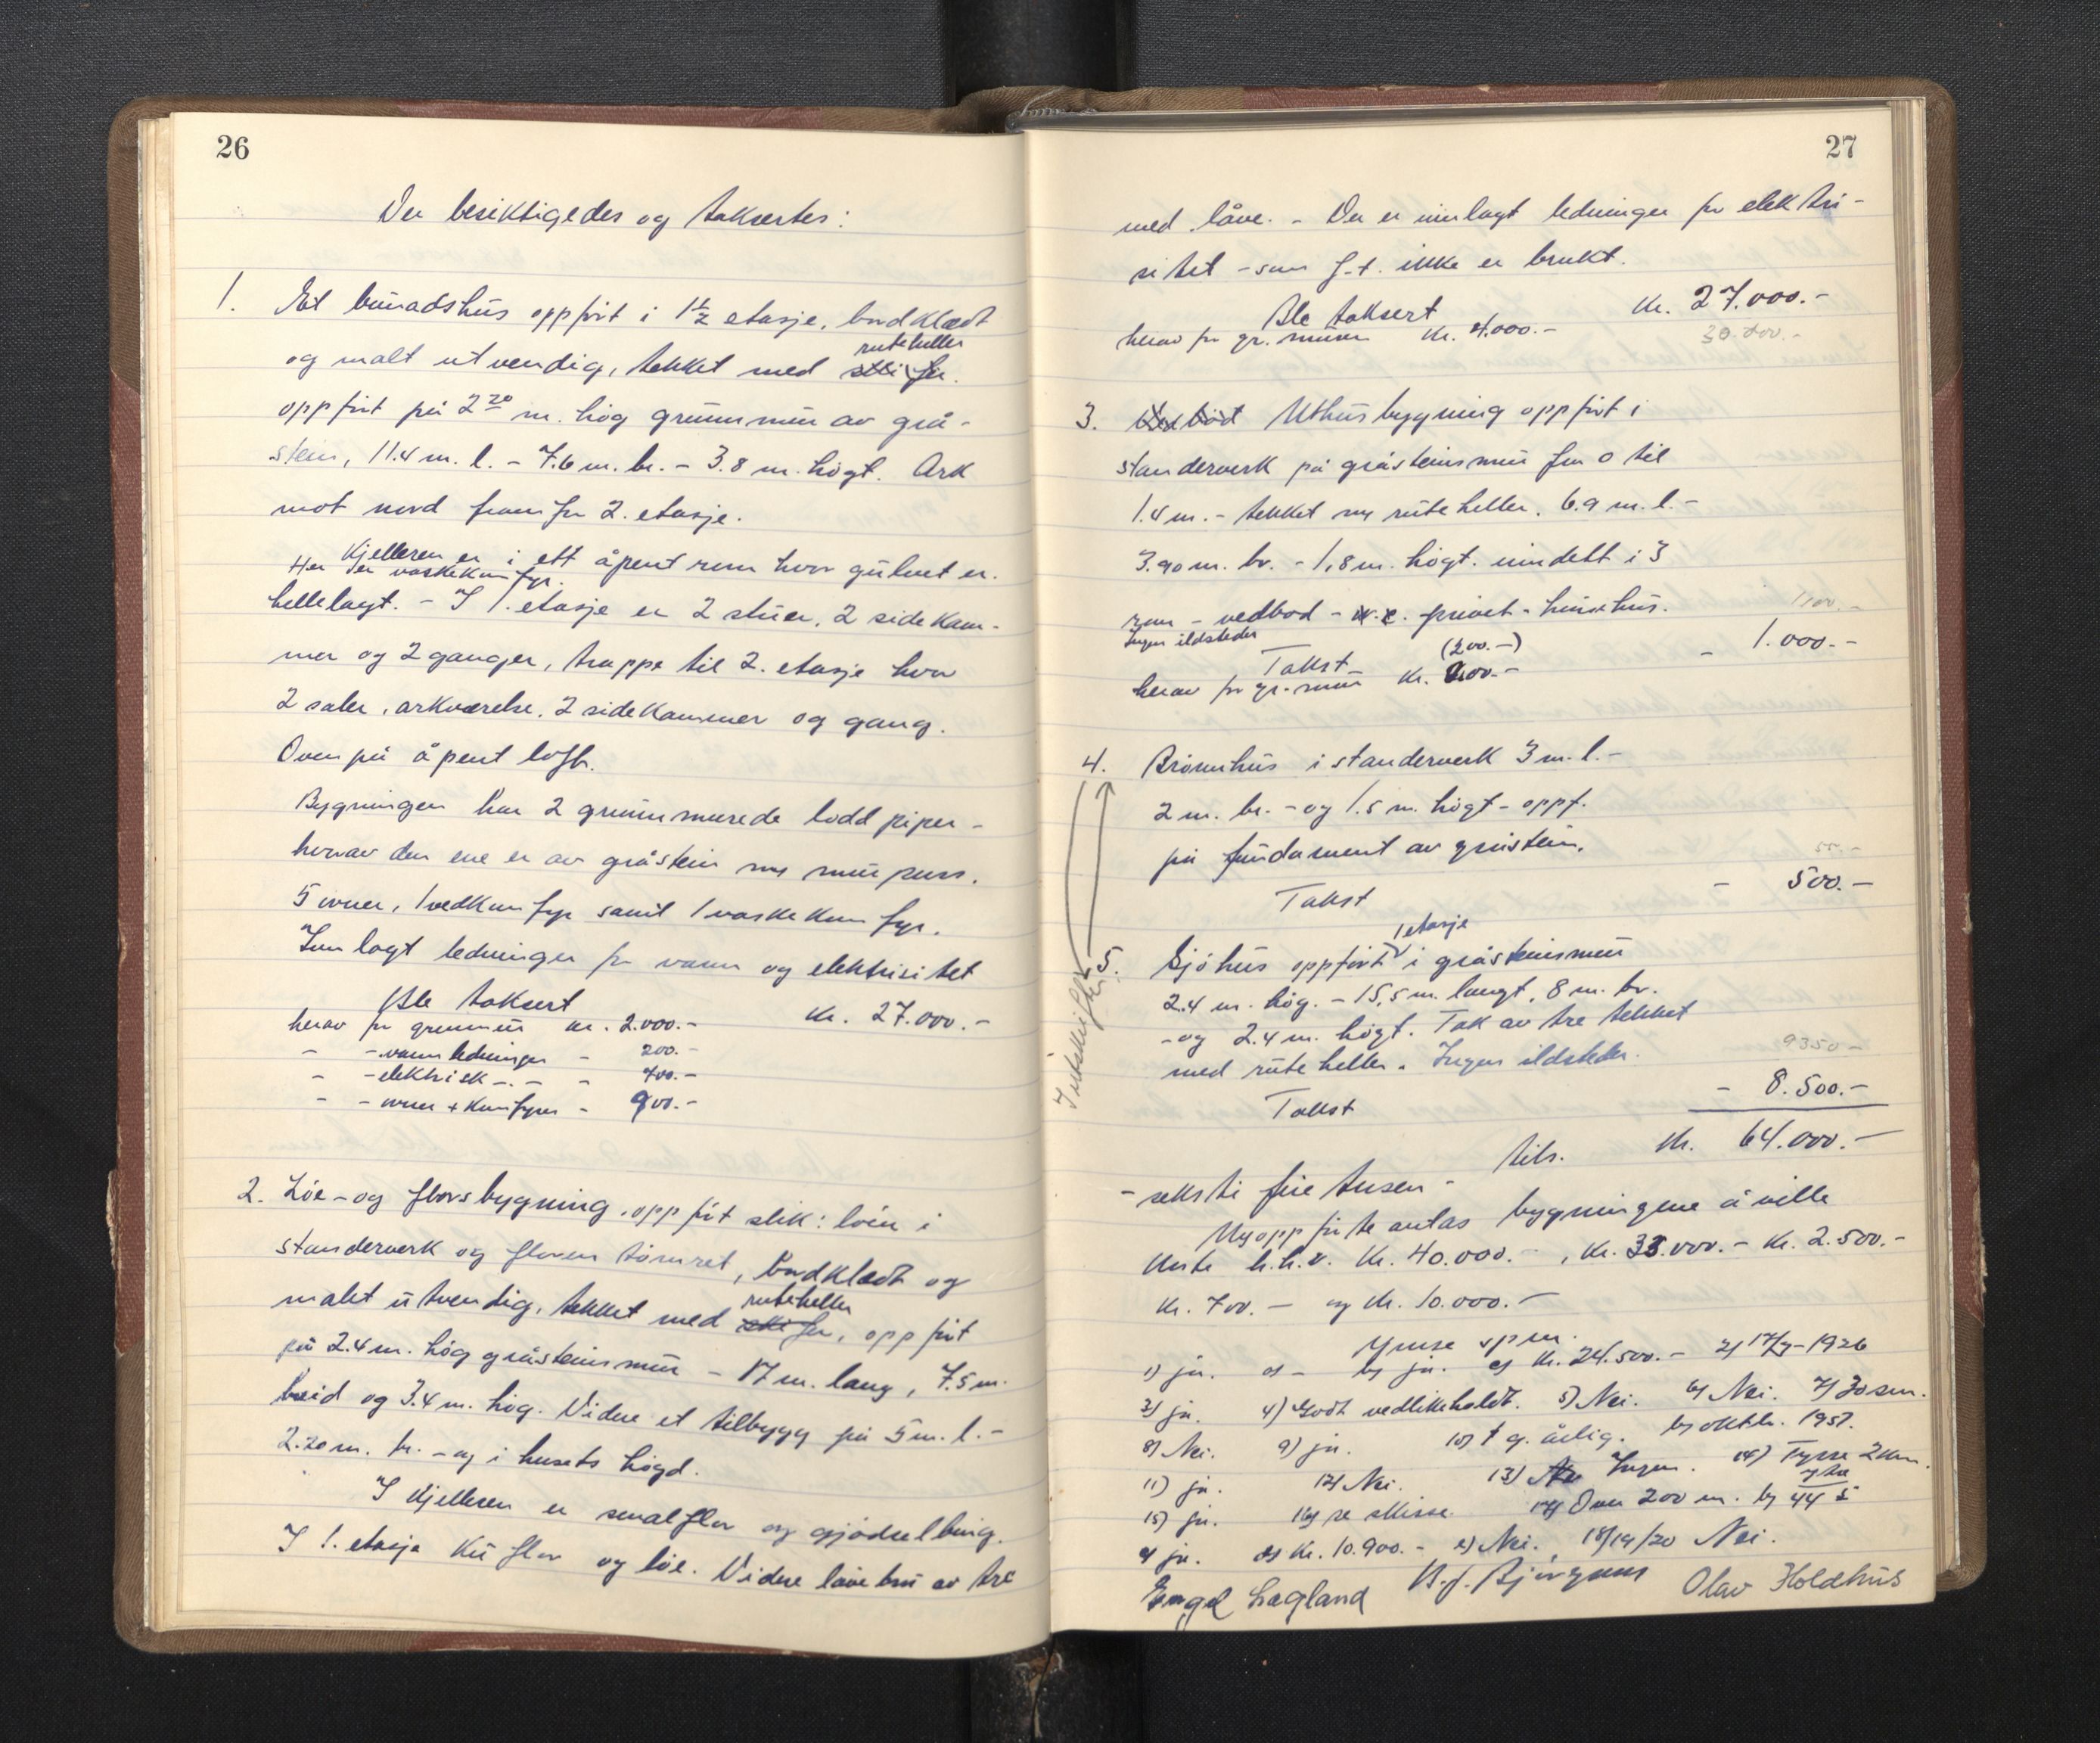 26
Der besiktigedes og taksertes:
1. Et bunadshus oppført i 1½ etasje, bordklædt
ruteheller
og malt utvendig, tekket med skifer.
oppført på 2²⁰ m. høg grunnmur av grå-
stein, 11.4 m. l. – 7.6 m. br. – 3.8 m. høgt. Ark
mot nord fram for 2. etasje.
Kjelleren er i ett åpent rum hvor gulvet er
Her er vaskekomfyr.
hellelagt. – I 1. etasje er 2 stuer, 2 sidekam-
mer og 2 ganger, trappe til 2. etasje hvor
2 saler, arkværelse, 2 sidekammer og gang.
Oven på åpent loft.
Bygningen har 2 grunnmurede lodd piper –
hvorav den ene er av gråstein m/ murpuss.
5 ovner, 1 vedkomfyr samt 1 vaskekomfyr.
Innlagt ledninger for vann og elektrisitet
Ble taksert kr. 27.000.–
herav for grunnmur kr. 2.000.–
– – vannledninger – 200.–
– – elektrisk –„– – 400.–
– – ovner + komfyrer – 900.–
2. Løe- og florsbygning, oppført slik: løen i
standerverk og floren tømret, bordklædt og
ruteheller
malt utvendig, tekket med skifer, oppført
på 2.4 m. høg gråsteinsmur – 17 m. lang, 7.5 m.
breid og 3.4 m. høg. Videre et tilbygg på 5 m. l. –
2.20 m. br. – og i husets høgd.
I kjelleren er smalflor og gjødselbing.
I 1. etasje kuflor og løe. Videre låvebru av tre
27
med låve. – Der er innlagt ledninger for elektri-
sitet – som f.t. ikke er brukt.
Ble taksert kr. 27.000.–
herav for gr. muren kr. 4.000.– 30.000.–
3. Uthusbygning oppført i
standerverk på gråsteinsmur fra 0 til
1.4 m. – tekket m/ ruteheller. 6.9 m. l. –
3.90 m. br. – 1,8 m. høgt. inndelt i 3
rom – vedbod – w.c. privet – hønsehus.
1100.–
Ingen ildsteder
Takst (200.–) – 1.000.–
herav for gr. mur kr. 200.–
4. Brønnhus i standerverk 3 m. l. –
2 m. br. – og 1.5 m. høgt – oppf.
på fundament av gråstein.
Takst – 500.–
1 etasje
5. Sjøhus oppført i gråsteinsmur
2.4 m. høg. – 15,5 m. langt, 8 m. br.
– og 2.4 m. høgt. Tak av tre tekket
med ruteheller. Ingen ildsteder.
9350 –
Takst – 8.500.–
tils. kr. 64.000.–
– seksti fire tusen –
Nyoppførte antas bygningene å ville
koste h.h.v. kr. 40.000.– , kr. 35.000.– kr. 2.500.–
kr. 700.– og kr. 10.000.–
Ymse spm.
1) ja. a) – b) ja. c) kr. 24.500.– 2) 17/7–1926
3) ja. 4) Godt vedlikeholdt. 5) Nei. 6) Nei. 7) 30 cm.
8) Nei. 9) ja. 10) 1 g. årlig. b) oktbr. 1957.
11) ja. 12) Nei. 13) Ingen. 14) Tysse 2 km.
15) ja. 16) se skisse. 17) Over 200 m. b) 44 5
c) ja. d) kr. 10.900.– e) Nei. 18/19/20 Nei.
Engel Lægland Olav Holdhus